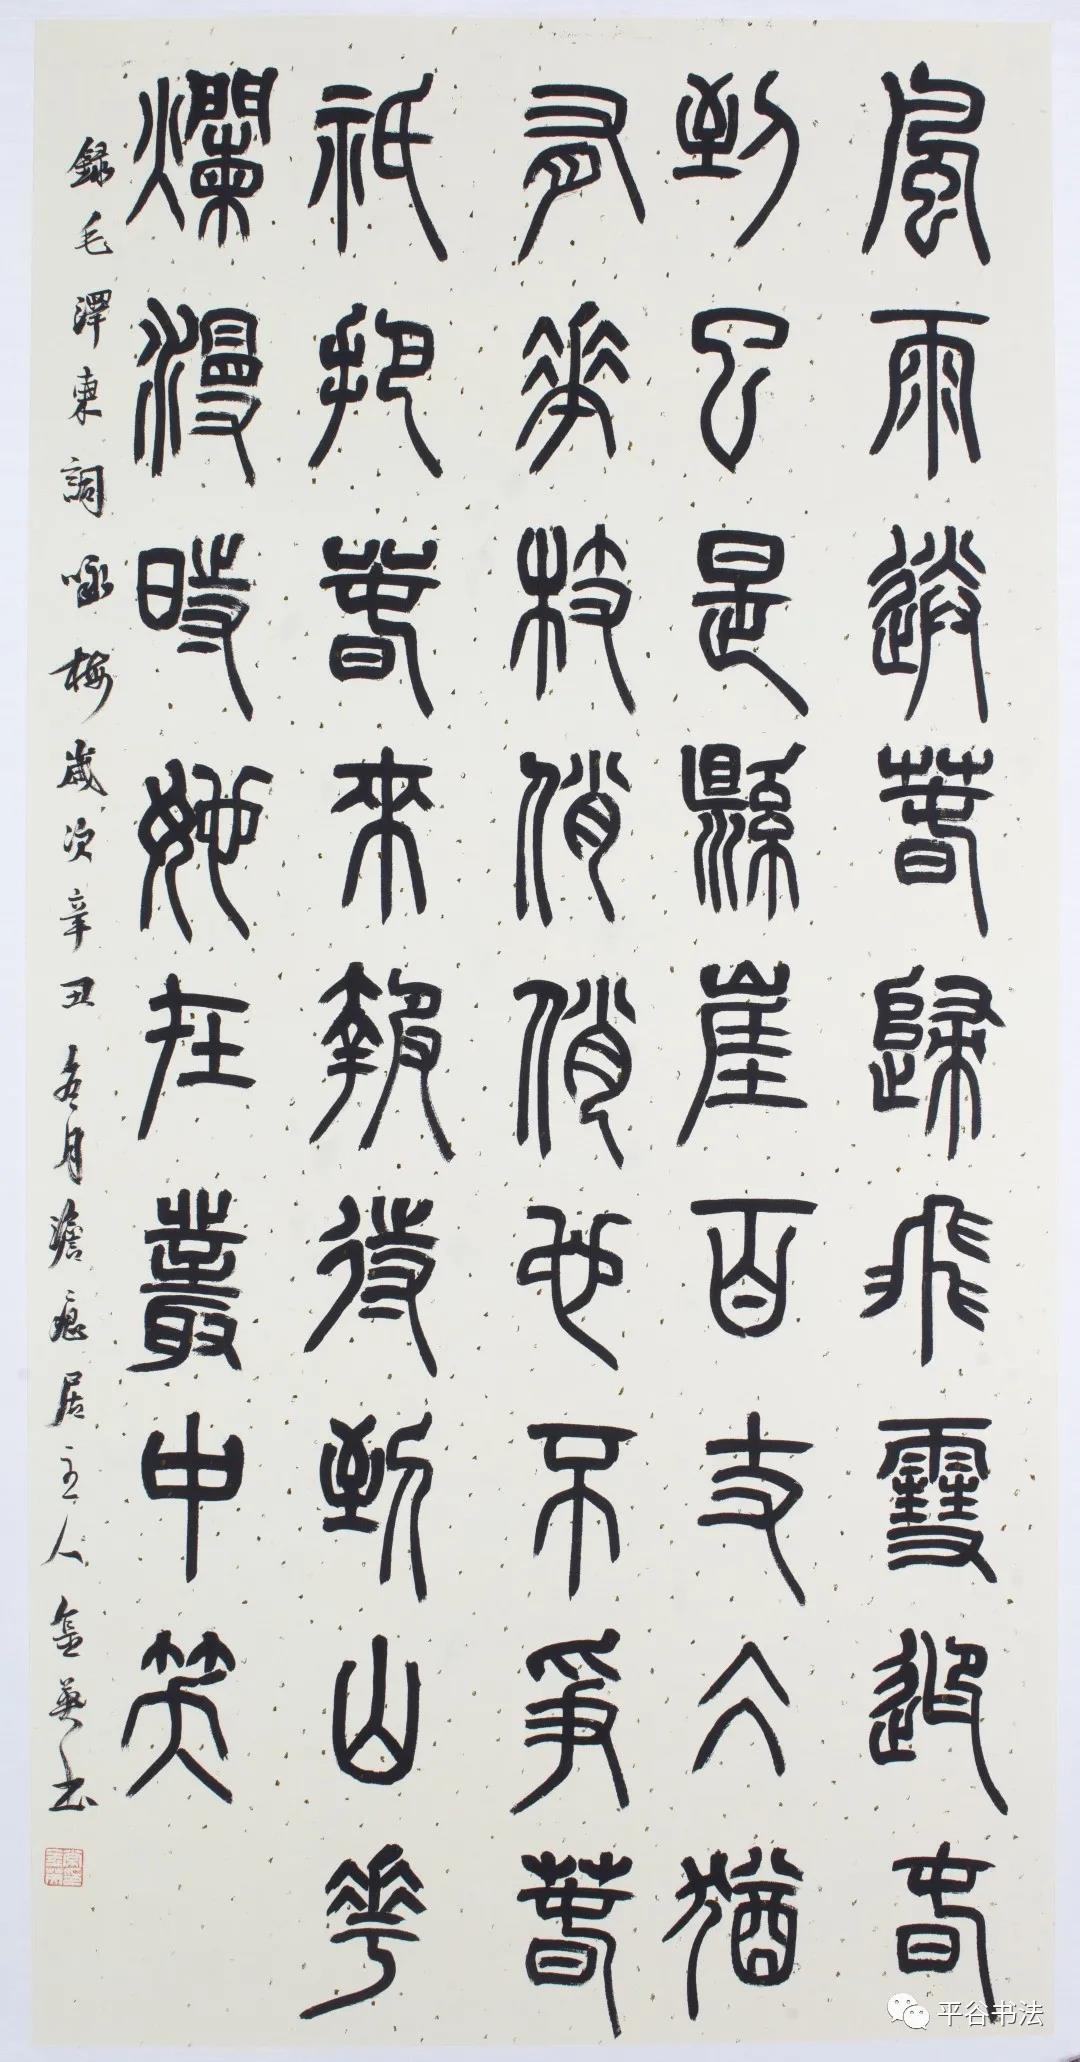 風雨送萅歸飛雪迎春
到已是縣崖百丈冰猶
有花枝俏俏也不爭萅
祇把萅來報待到山花
爛漫時她在叢中笑
錄毛澤東詞詠梅歲次辛丑冬月澹廬居主人金英书
平谷书法